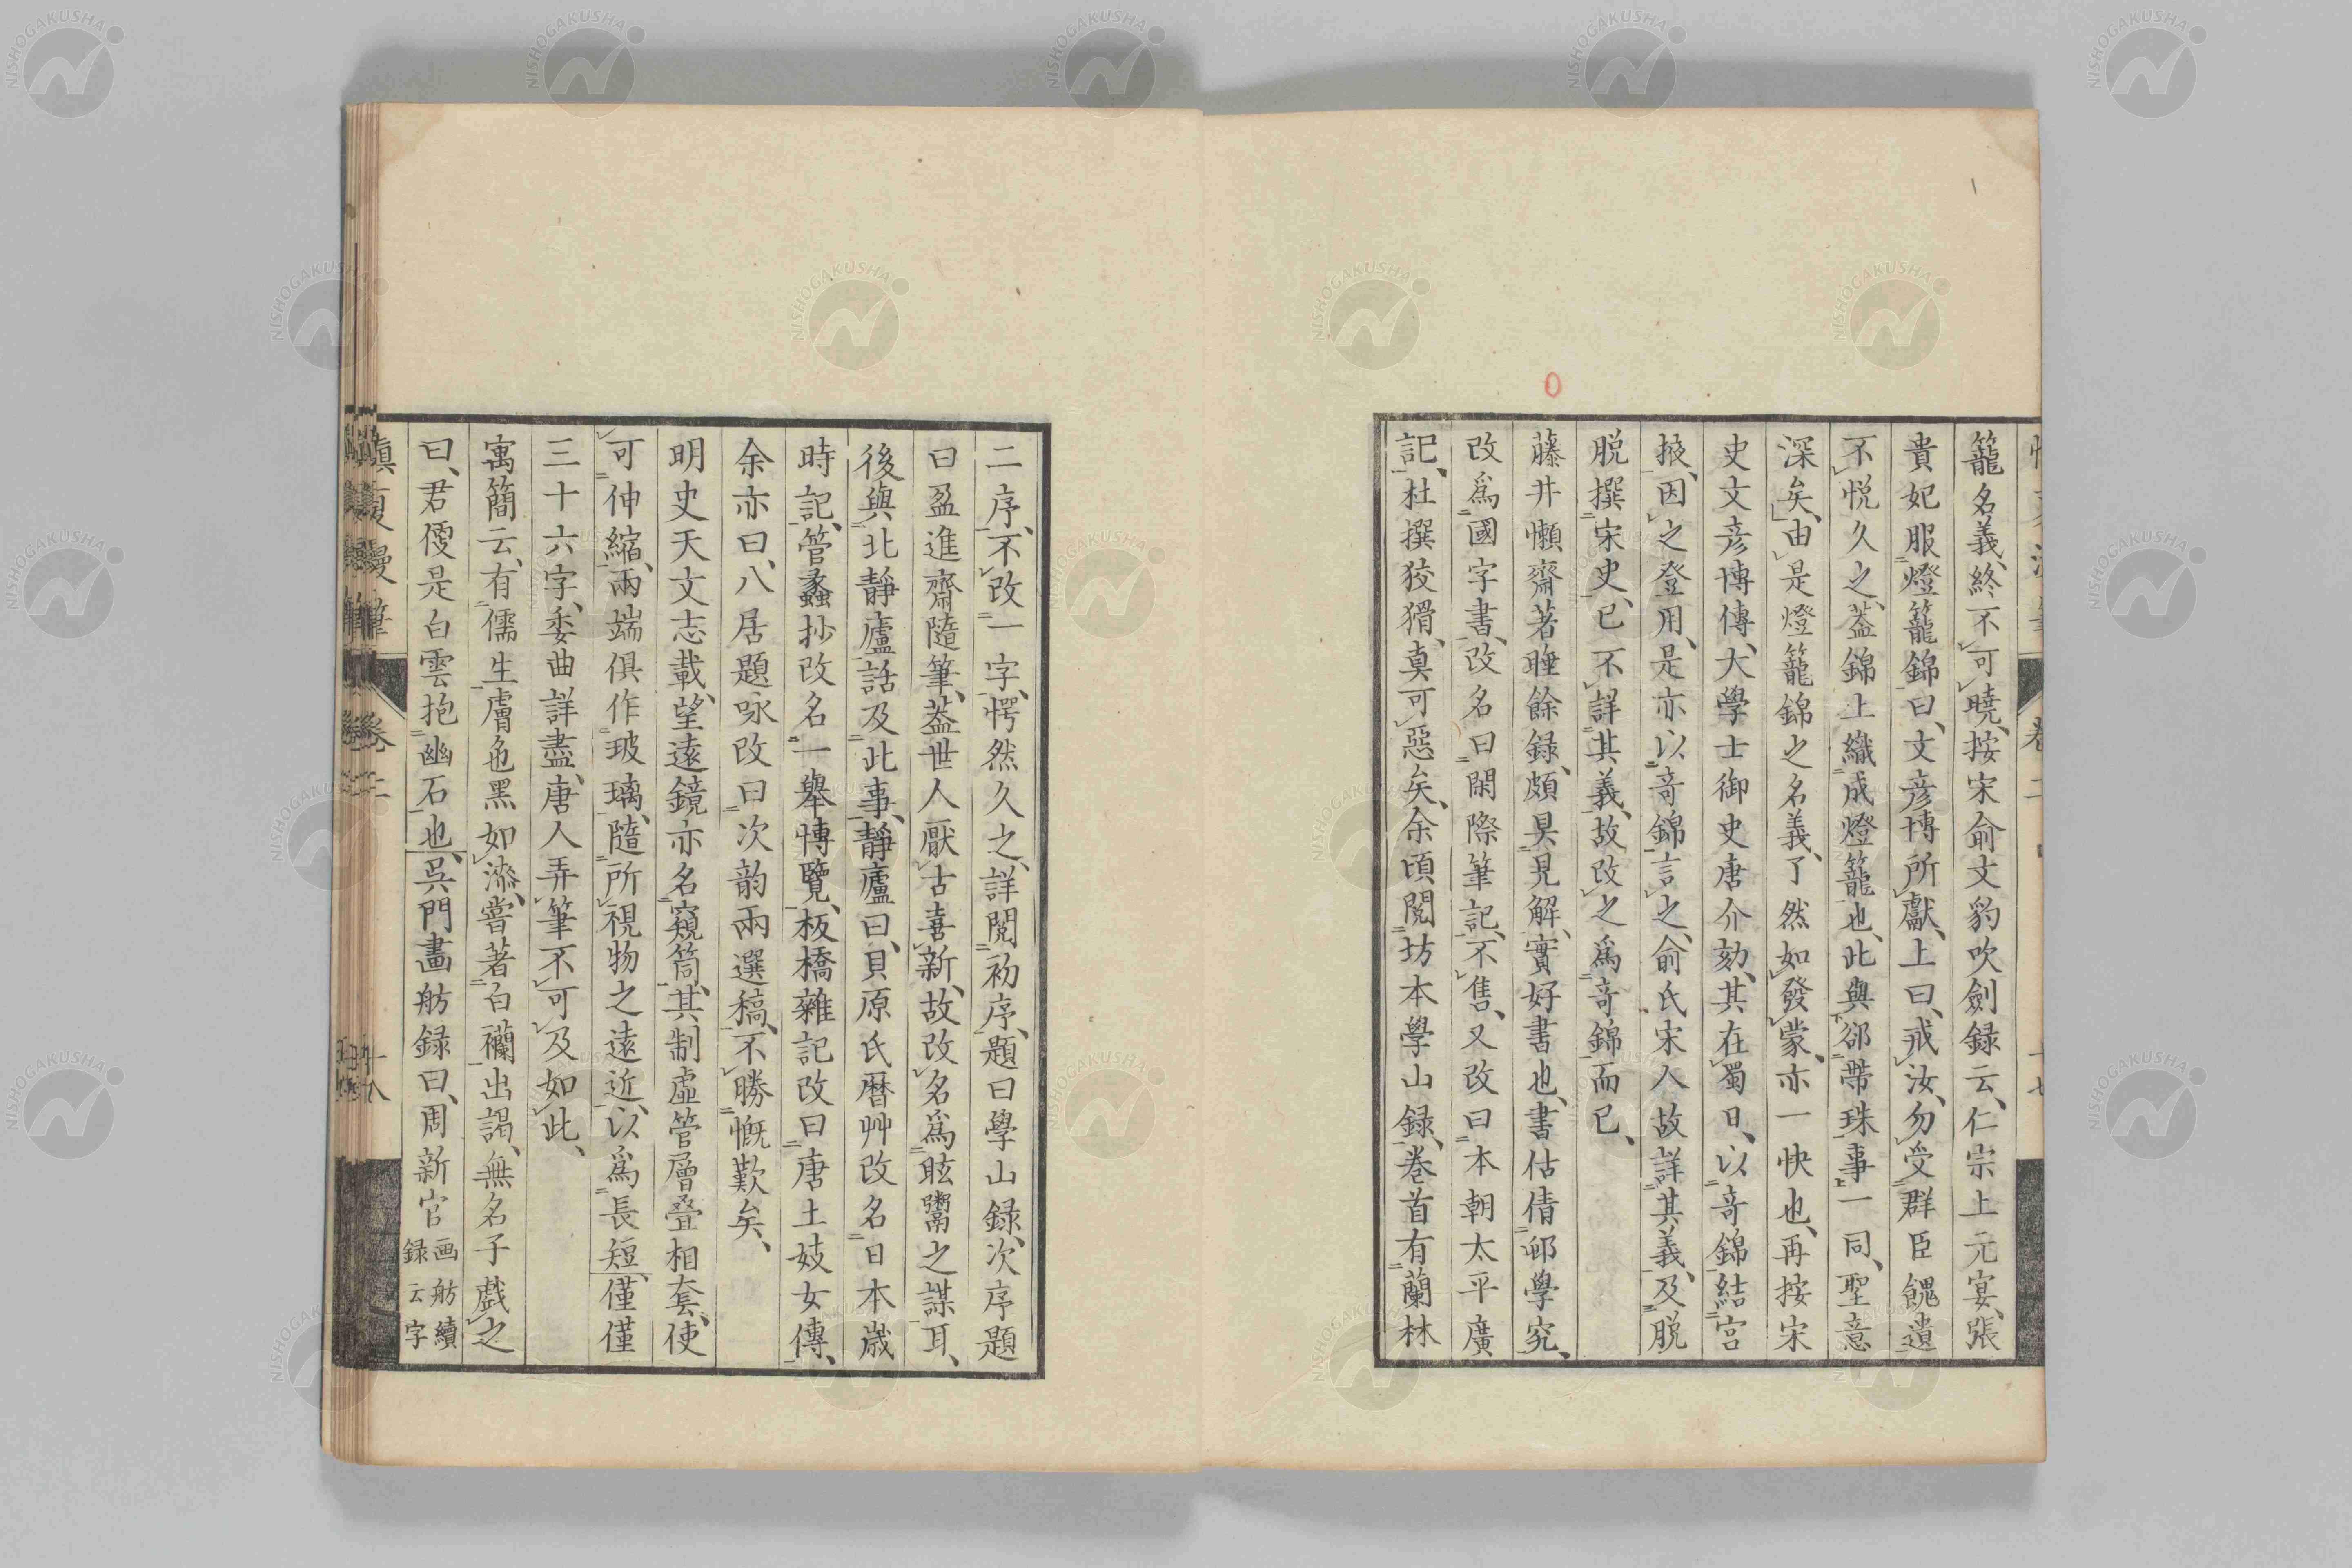 籠名義、終不可曉、按宋俞文豹吹劍録云、仁宗上元宴、張
貴妃服燈籠錦、曰、文彦博所獻、上曰、戒汝、勿受群臣餽遺
不悦久之、葢錦上織成燈籠也、此與郤帶珠事一同、聖意
深矣、由是燈籠錦之名義、了然如發蒙、亦一快也、再按宋
史文彦博傳、大學士御史唐介劾、其在蜀日、以竒錦結宮
掖、因之登用、是亦以竒錦言之、俞氏宋人故詳其義、及脱
脱撰宋史、已不詳其義、故改之爲竒錦而已、
藤井懶齋著睡餘録、頗具見解、實好書也、書估倩邨學究、
改爲國字書、改名曰閑際筆記、不售、又改曰本朝太平廣
記、杜撰狡猾、真可惡矣、余頃閲坊本學山録、巻首有蘭林
二序、不改一字、愕然久之、詳閲初序、題曰學山録、次序題
曰盈進齋隨筆、葢世人厭古喜新、故改名爲眩鬻之謀耳、
後與北靜廬話及此事、靜廬曰、貝原氏暦艸改名日本歳
時記、管蠡抄改名一舉博覽、板橋雜記改曰唐土妓女傳、
余亦曰、八居題咏改曰次韵兩選稿、不勝慨歎矣、
明史天文志載、望遠鏡亦名窺筒、其制虛管層疊相套、使
可伸縮、兩端俱作玻璃、隨所視物之遠近、以爲長短、僅僅
三十六字、委曲詳盡、唐人弄筆不可及如此、
寓簡云、有儒生膚色黒如漆、嘗著白襴出謁、無名子戲之
曰、君僾是白雲抱幽石也、呉門畫舫録曰、周新官 画舫續録云字
愼夏漫筆 巻二 十八
NISHOGAKUSHA